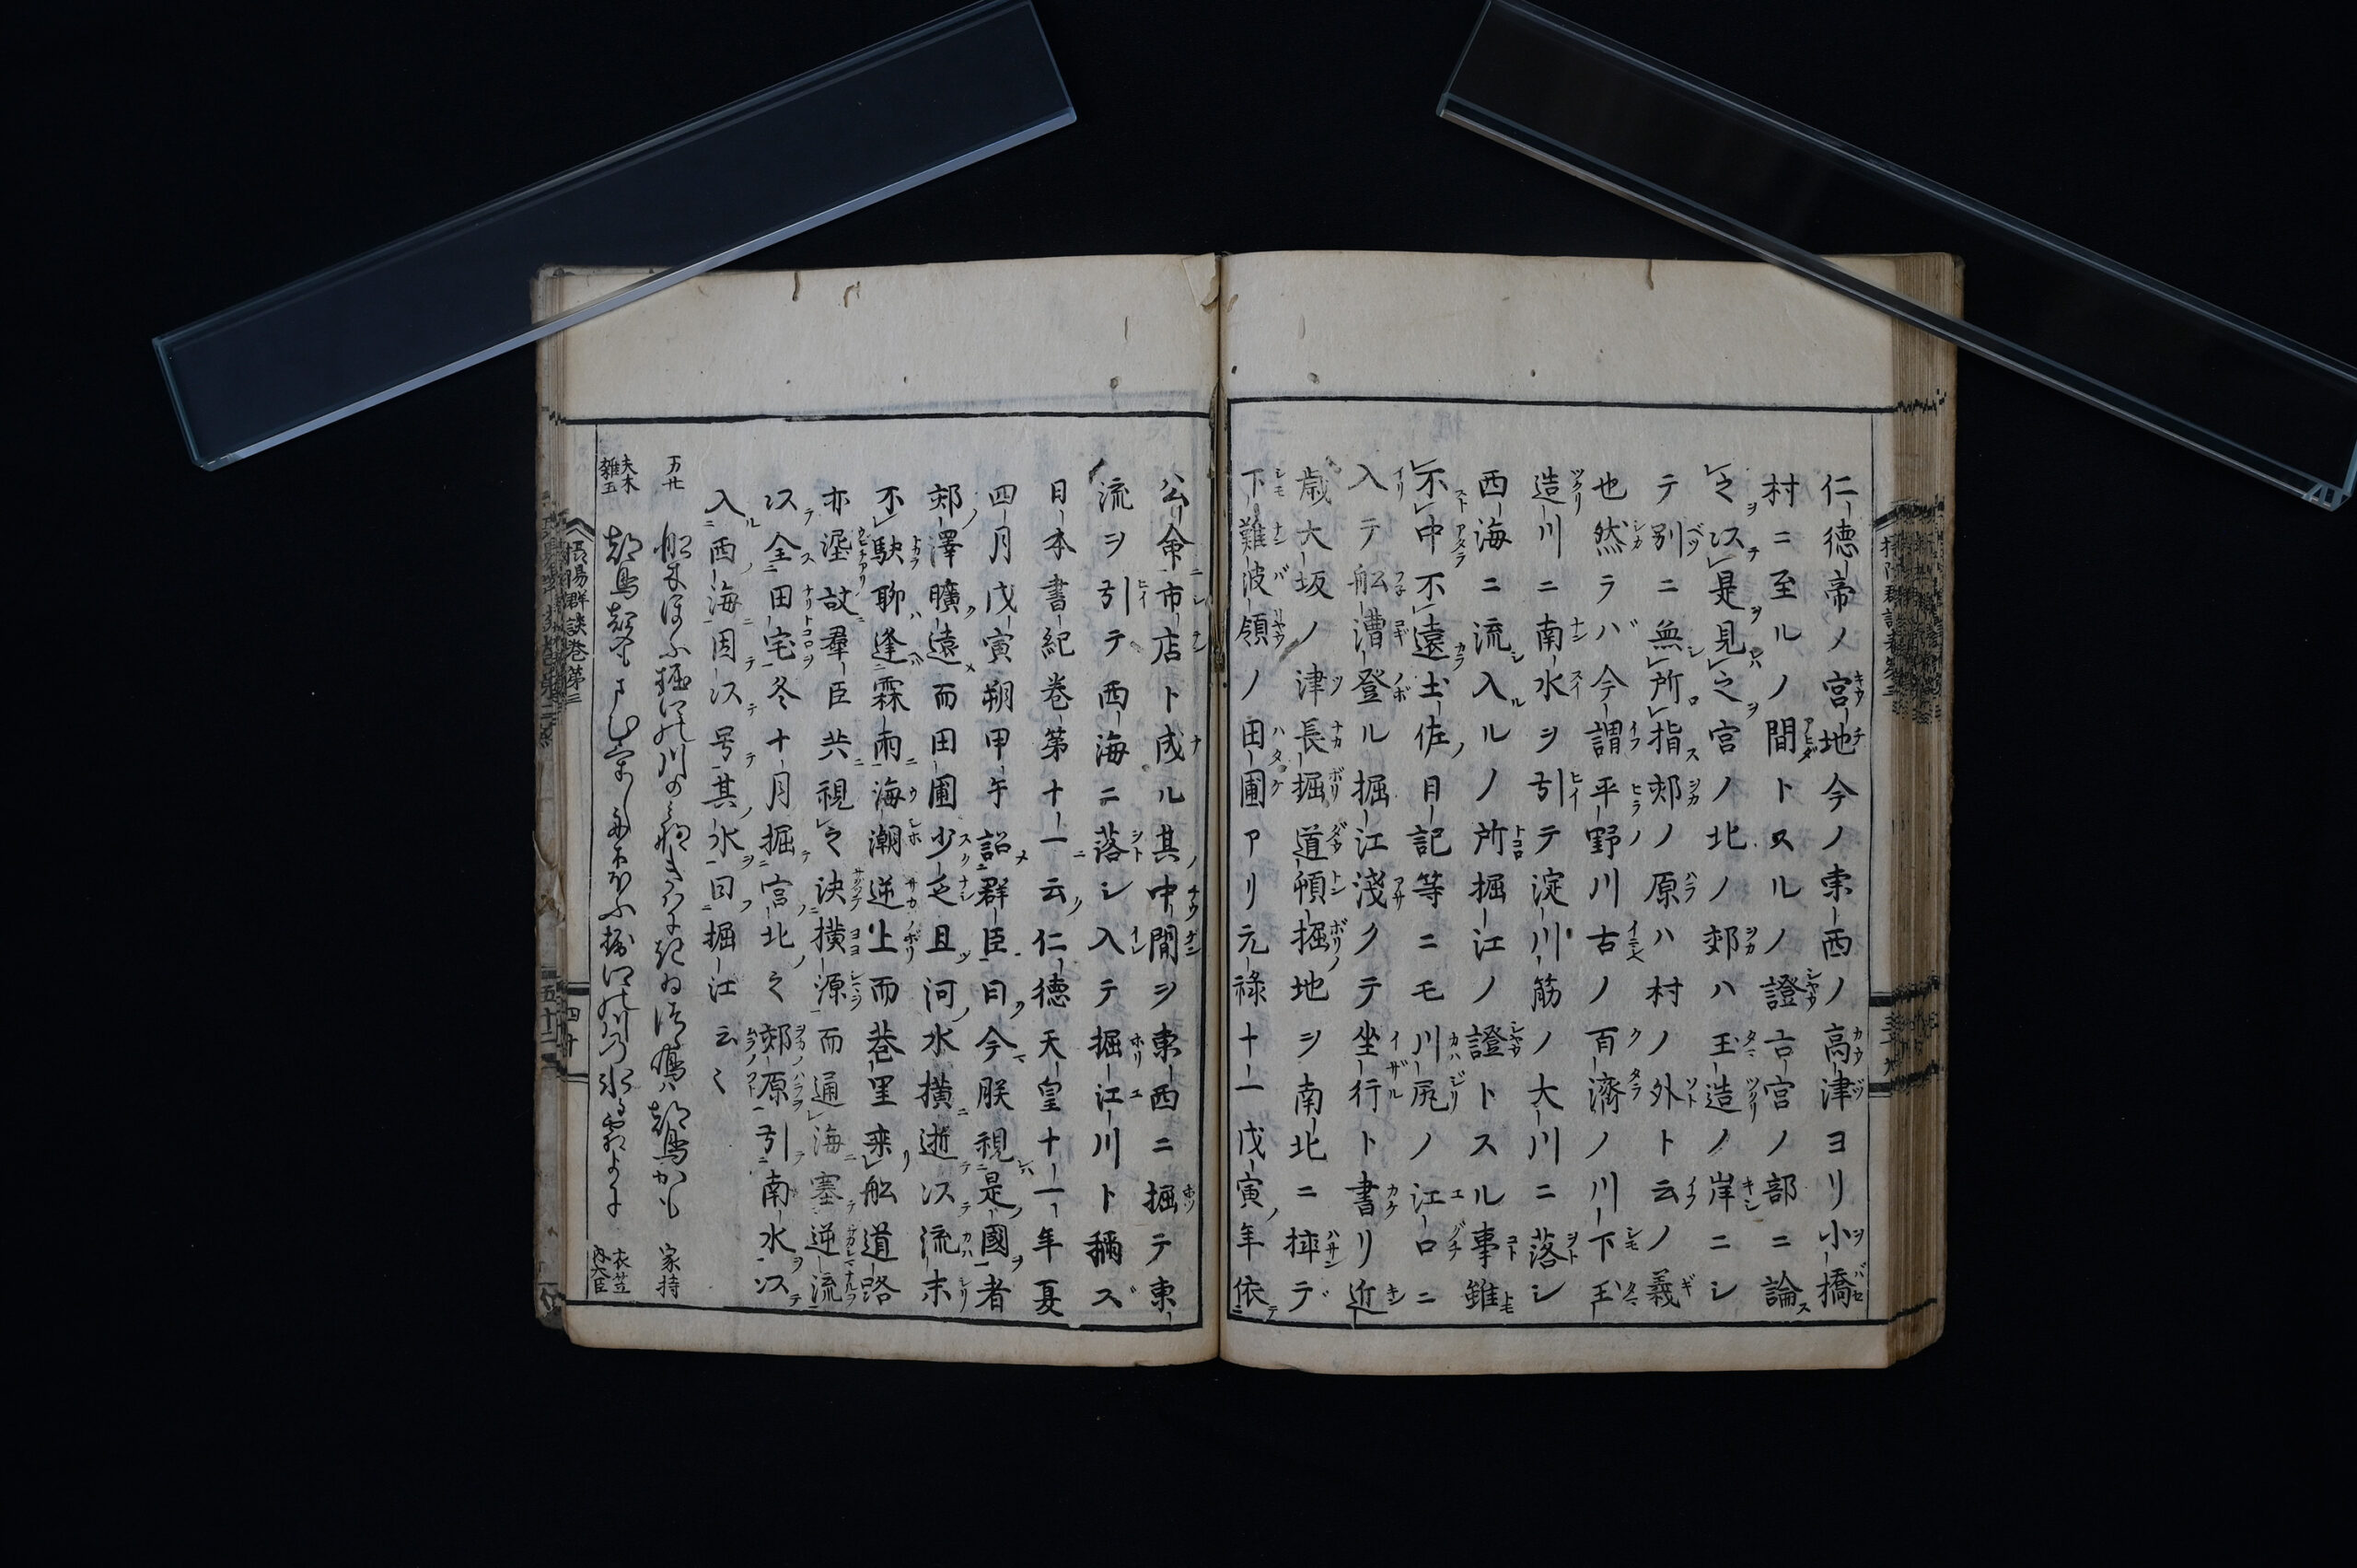 仁徳帝ノ宮地今ノ東西ノ高津ヨリ小橋
村ニ至ルノ間トスルノ證古宮ノ部ニ論
之以是見之宮ノ北ノ郊ハ玉造ノ岸ニシ
テ別ニ無所指郊ノ原ハ村ノ外ト云ノ義
也然ラバ今謂平野川古ノ百濟ノ川下玉
造川ニ南水ヲ引テ淀川筋ノ大川ニ落シ
西海ニ流入ルノ所掘江ノ證トスル事雖
不中不遠土佐日記等ニモ川尻ノ江口ニ
入テ舩漕登ル掘江淺クテ坐行ト書リ近
歳大坂ノ津長掘道頓掘地ヲ南北ニ挾デ
下難波領ノ田圃アリ元禄十一戊寅年依
公命市店ト成ル其中間ヲ東西ニ掘テ東
流ヲ引テ西海ニ落シ入テ掘江川ト稱ス
日本書紀巻第十一云仁徳天皇十一年夏
四月戊寅朔甲午詔群臣曰今朕視是國者
郊澤曠遠而田圃少乏且河水横逝以流末
不駃聊逢霖雨海潮逆上而巷里乗舩道路
亦泥故羣臣共視之決横源而通海塞逆流
以全田宅冬十月掘宮北之郊原引南水以
入西海因以号其水曰掘江云〻
万廿
家持
夫木
雜五
都鳥
衣笠
内大臣
摂陽群談巻第三